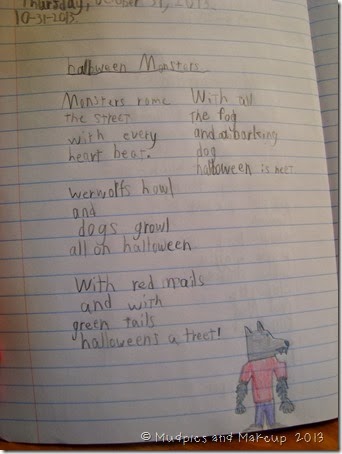 Thursday, October 31, 2013
10-31-2013
halloween Monsters
Monsters rome
the street
with every
heart beat.
werwolfs howl
and
dogs growl
all on halloween
With red nails
and with
green tails
halloweens a treet!
With all
the fog
and a barking
dog
halloween is neet
© Mudpies and Makeup 2013